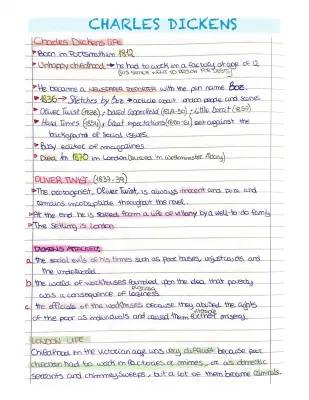 CHARLES DICKENS
Charles Dickens life
Born in Portsmouth in 1812
Unhappy childhood → he had to work in a factory at age of 12
(HIS FATHER WENT TO PRISON FOR DEBTS)
He became a NEWSPAPER REPORTER with the pen name Boz.
1836 → Sketches by Boz → article about london people and scenes
Oliver Twist (1838), David Copperfield (1849-50), Little Dorrit (1857)
Hard Times (1854), Great expectations (1860-61) set against the
background of social issues
Busy editor of magazines
Died in 1870 in London (buried in Westminster Abbey)
OLIVER TWIST (1837-39)
The protagonist, Oliver Twist, is always innocent and pure and
remains incorruptible throughout the novel.
At the end he is saved from a life of villany by a well-to-do family
The setting is London
DICKENS ATTACKED:
a. the social evils of his times such as poor houses, unjust courts and
the underworld.
b. the world of workhouses founded upon the idea that poverty
was a consequence of laziness
c. the officials of the workhouses because they abused the rights
of the poor as individuals and caused them further misery.
LONDON LIFE
Childhood in the victorian age was very difficult because poor
children had to work in factories or mines, or as domestic
servants and chimney sweeps, but a lot of them became criminals.